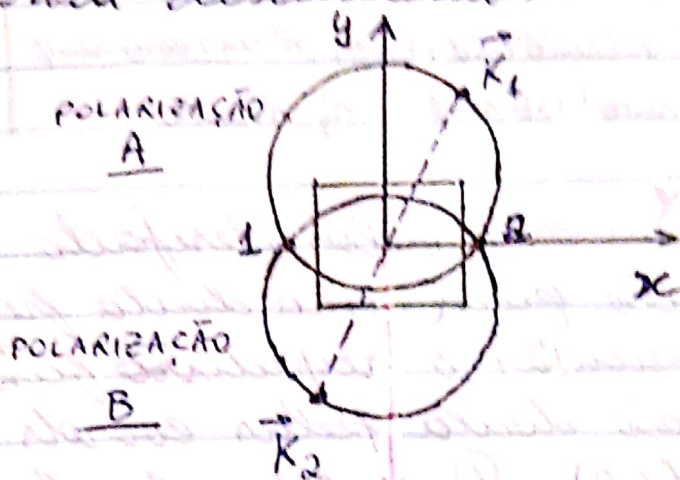 y
K₁
POLARIZAÇÃO
A
1
2
x
POLARIZAÇÃO
B
K₂